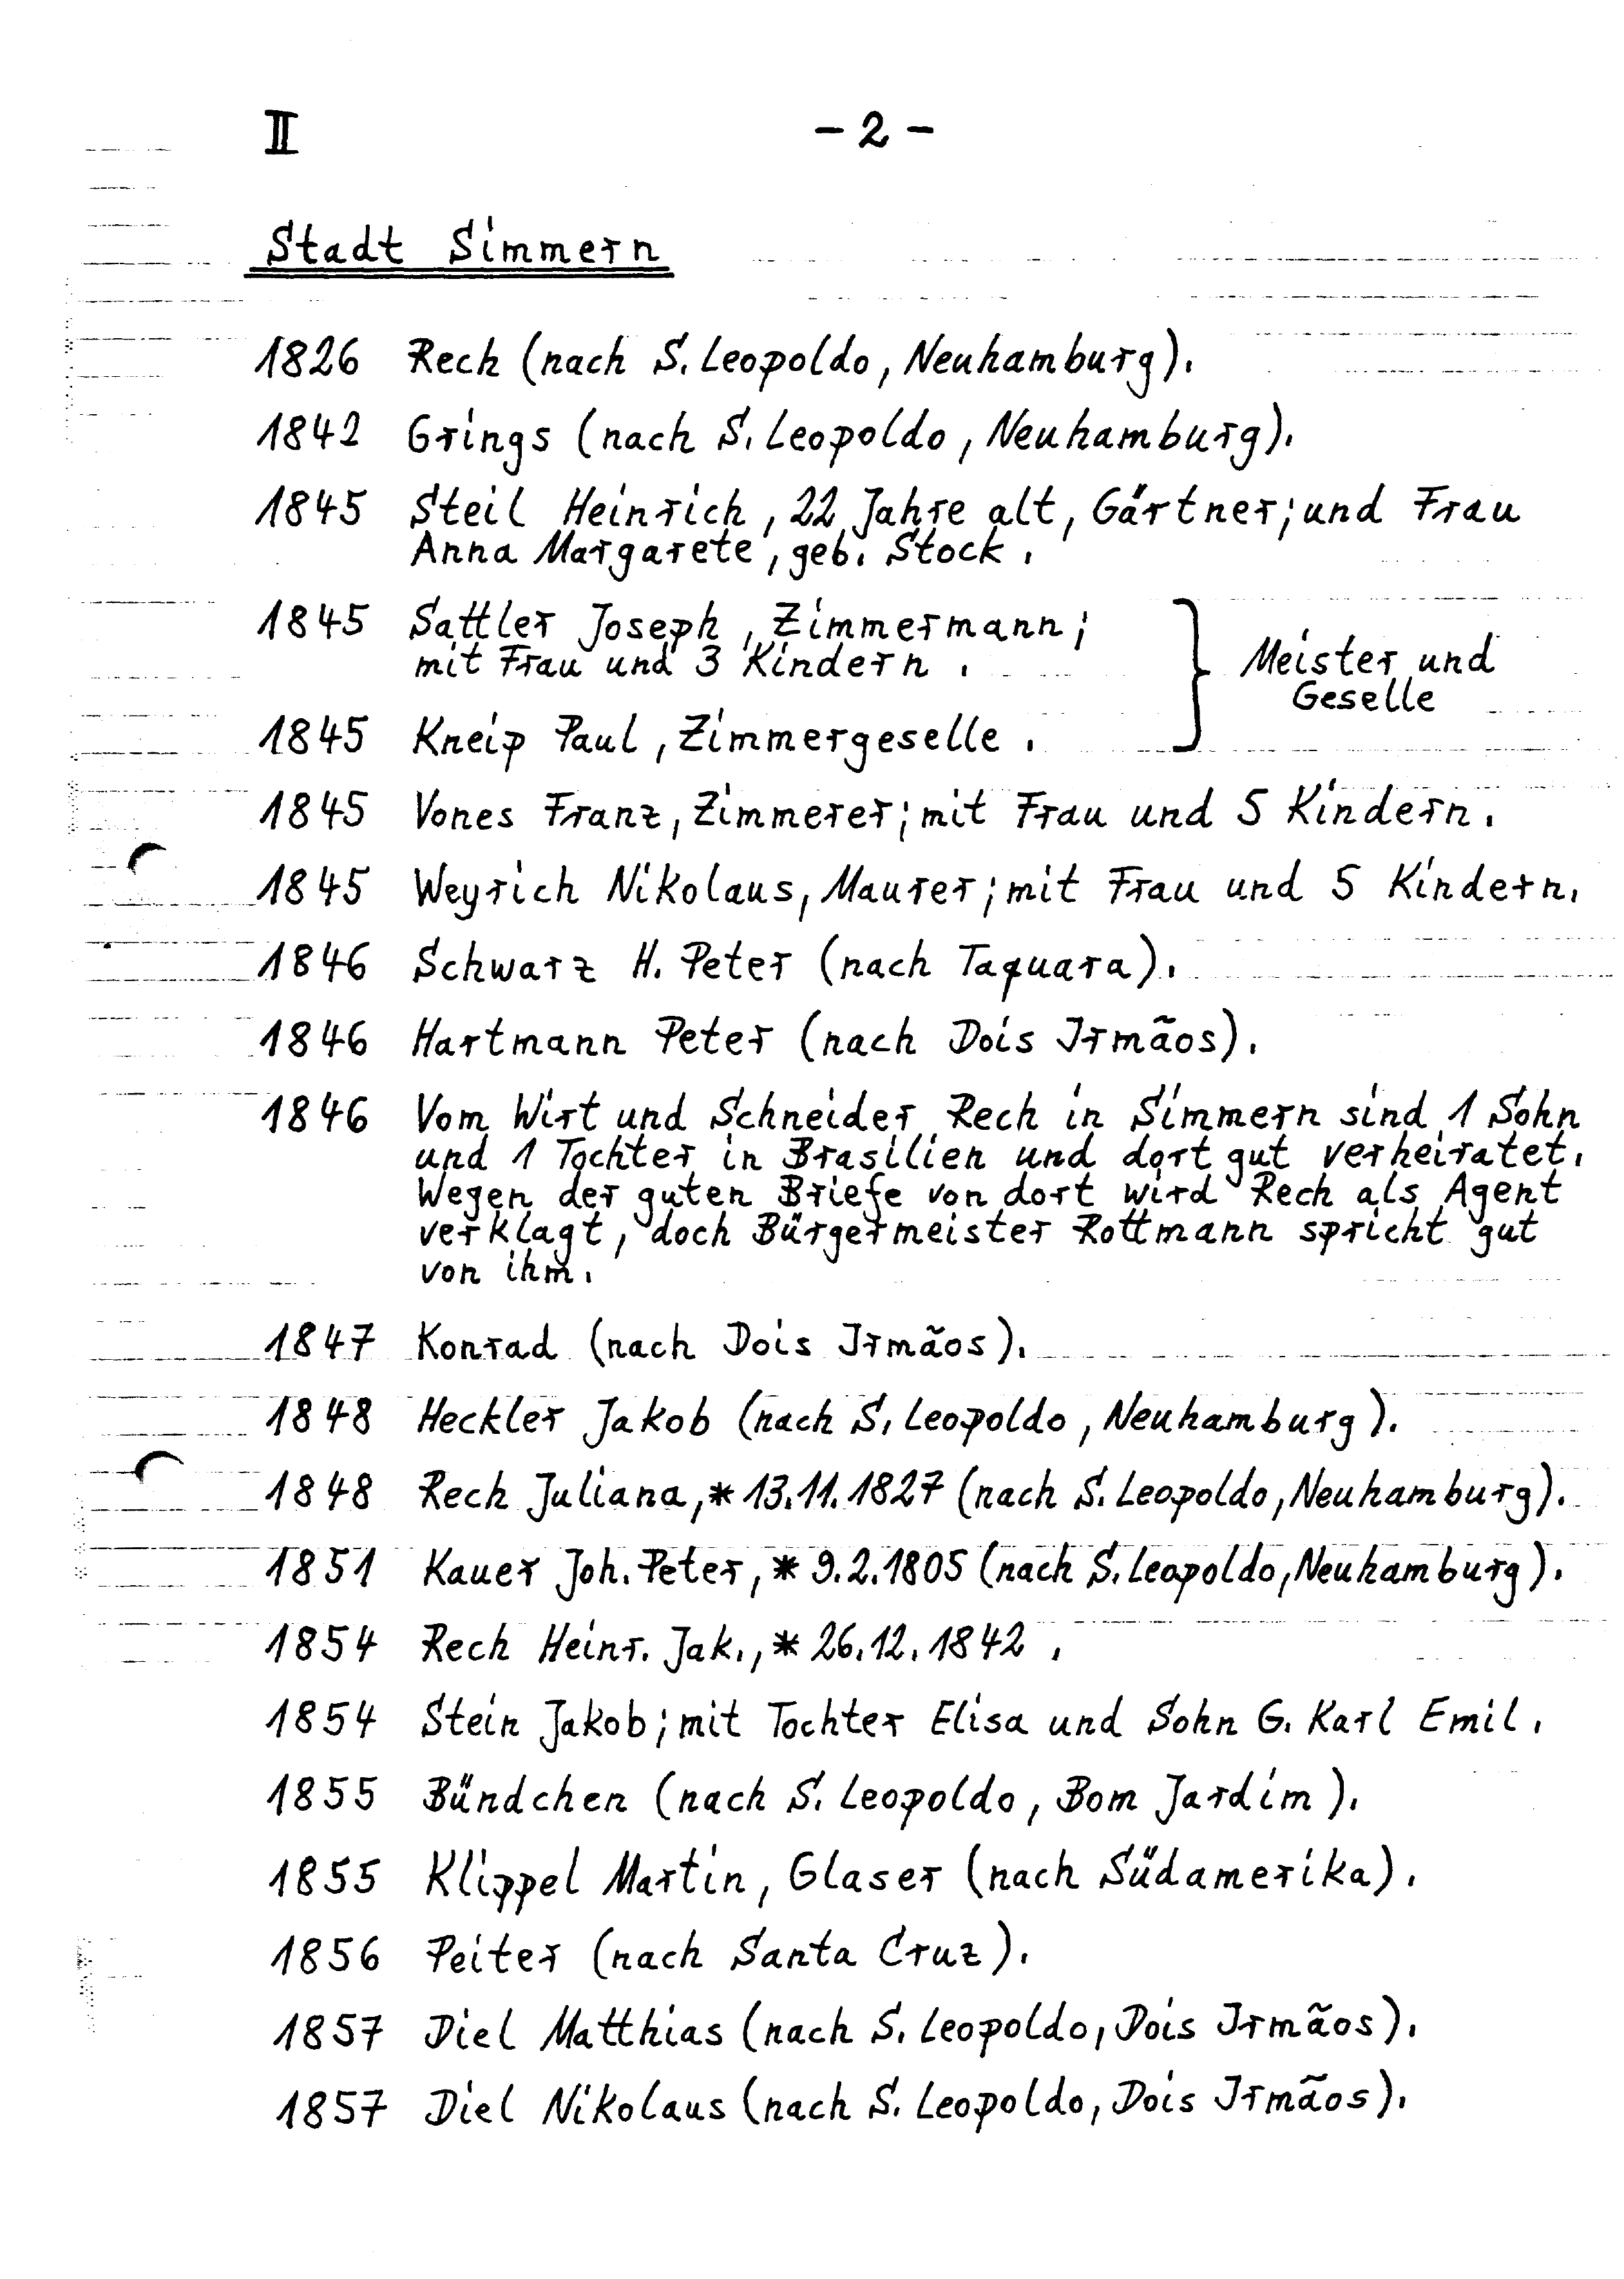 II
- 2 -
Stadt Simmern
1826 Rech (nach S. Leopoldo, Neuhamburg).
1842 Grings (nach S. Leopoldo, Neuhamburg).
1845 Steil Heinrich, 22 Jahre alt, Gärtner; und Frau
Anna Margarete, geb. Stock.
1845 Sattler Joseph, Zimmermann;
mit Frau und 3 Kindern.
Meister und
Geselle
1845 Kneip Paul, Zimmergeselle.
1845 Vones Franz, Zimmerer; mit Frau und 5 Kindern.
1845 Weyrich Nikolaus, Maurer; mit Frau und 5 Kindern.
1846 Schwarz H. Peter (nach Taquara).
1846 Hartmann Peter (nach Dois Irmãos).
1846 Vom Wirt und Schneider Rech in Simmern sind 1 Sohn
und 1 Tochter in Brasilien und dort gut verheiratet.
Wegen der guten Briefe von dort wird Rech als Agent
verklagt, doch Bürgermeister Rottmann spricht gut
von ihm.
1847 Konrad (nach Dois Irmãos).
1848 Heckler Jakob (nach S. Leopoldo, Neuhamburg).
1848 Rech Juliana, * 13.11.1827 (nach S. Leopoldo, Neuhamburg).
1851 Kauer Joh. Peter, * 9.2.1805 (nach S. Leopoldo, Neuhamburg).
1854 Rech Heinr. Jak., * 26.12.1842.
1854 Stein Jakob; mit Tochter Elisa und Sohn G. Karl Emil.
1855 Bündchen (nach S. Leopoldo, Bom Jardim).
1855 Klippel Martin, Glaser (nach Südamerika).
1856 Peiter (nach Santa Cruz).
1857 Diel Matthias (nach S. Leopoldo, Dois Irmãos).
1857 Diel Nikolaus (nach S. Leopoldo, Dois Irmãos).